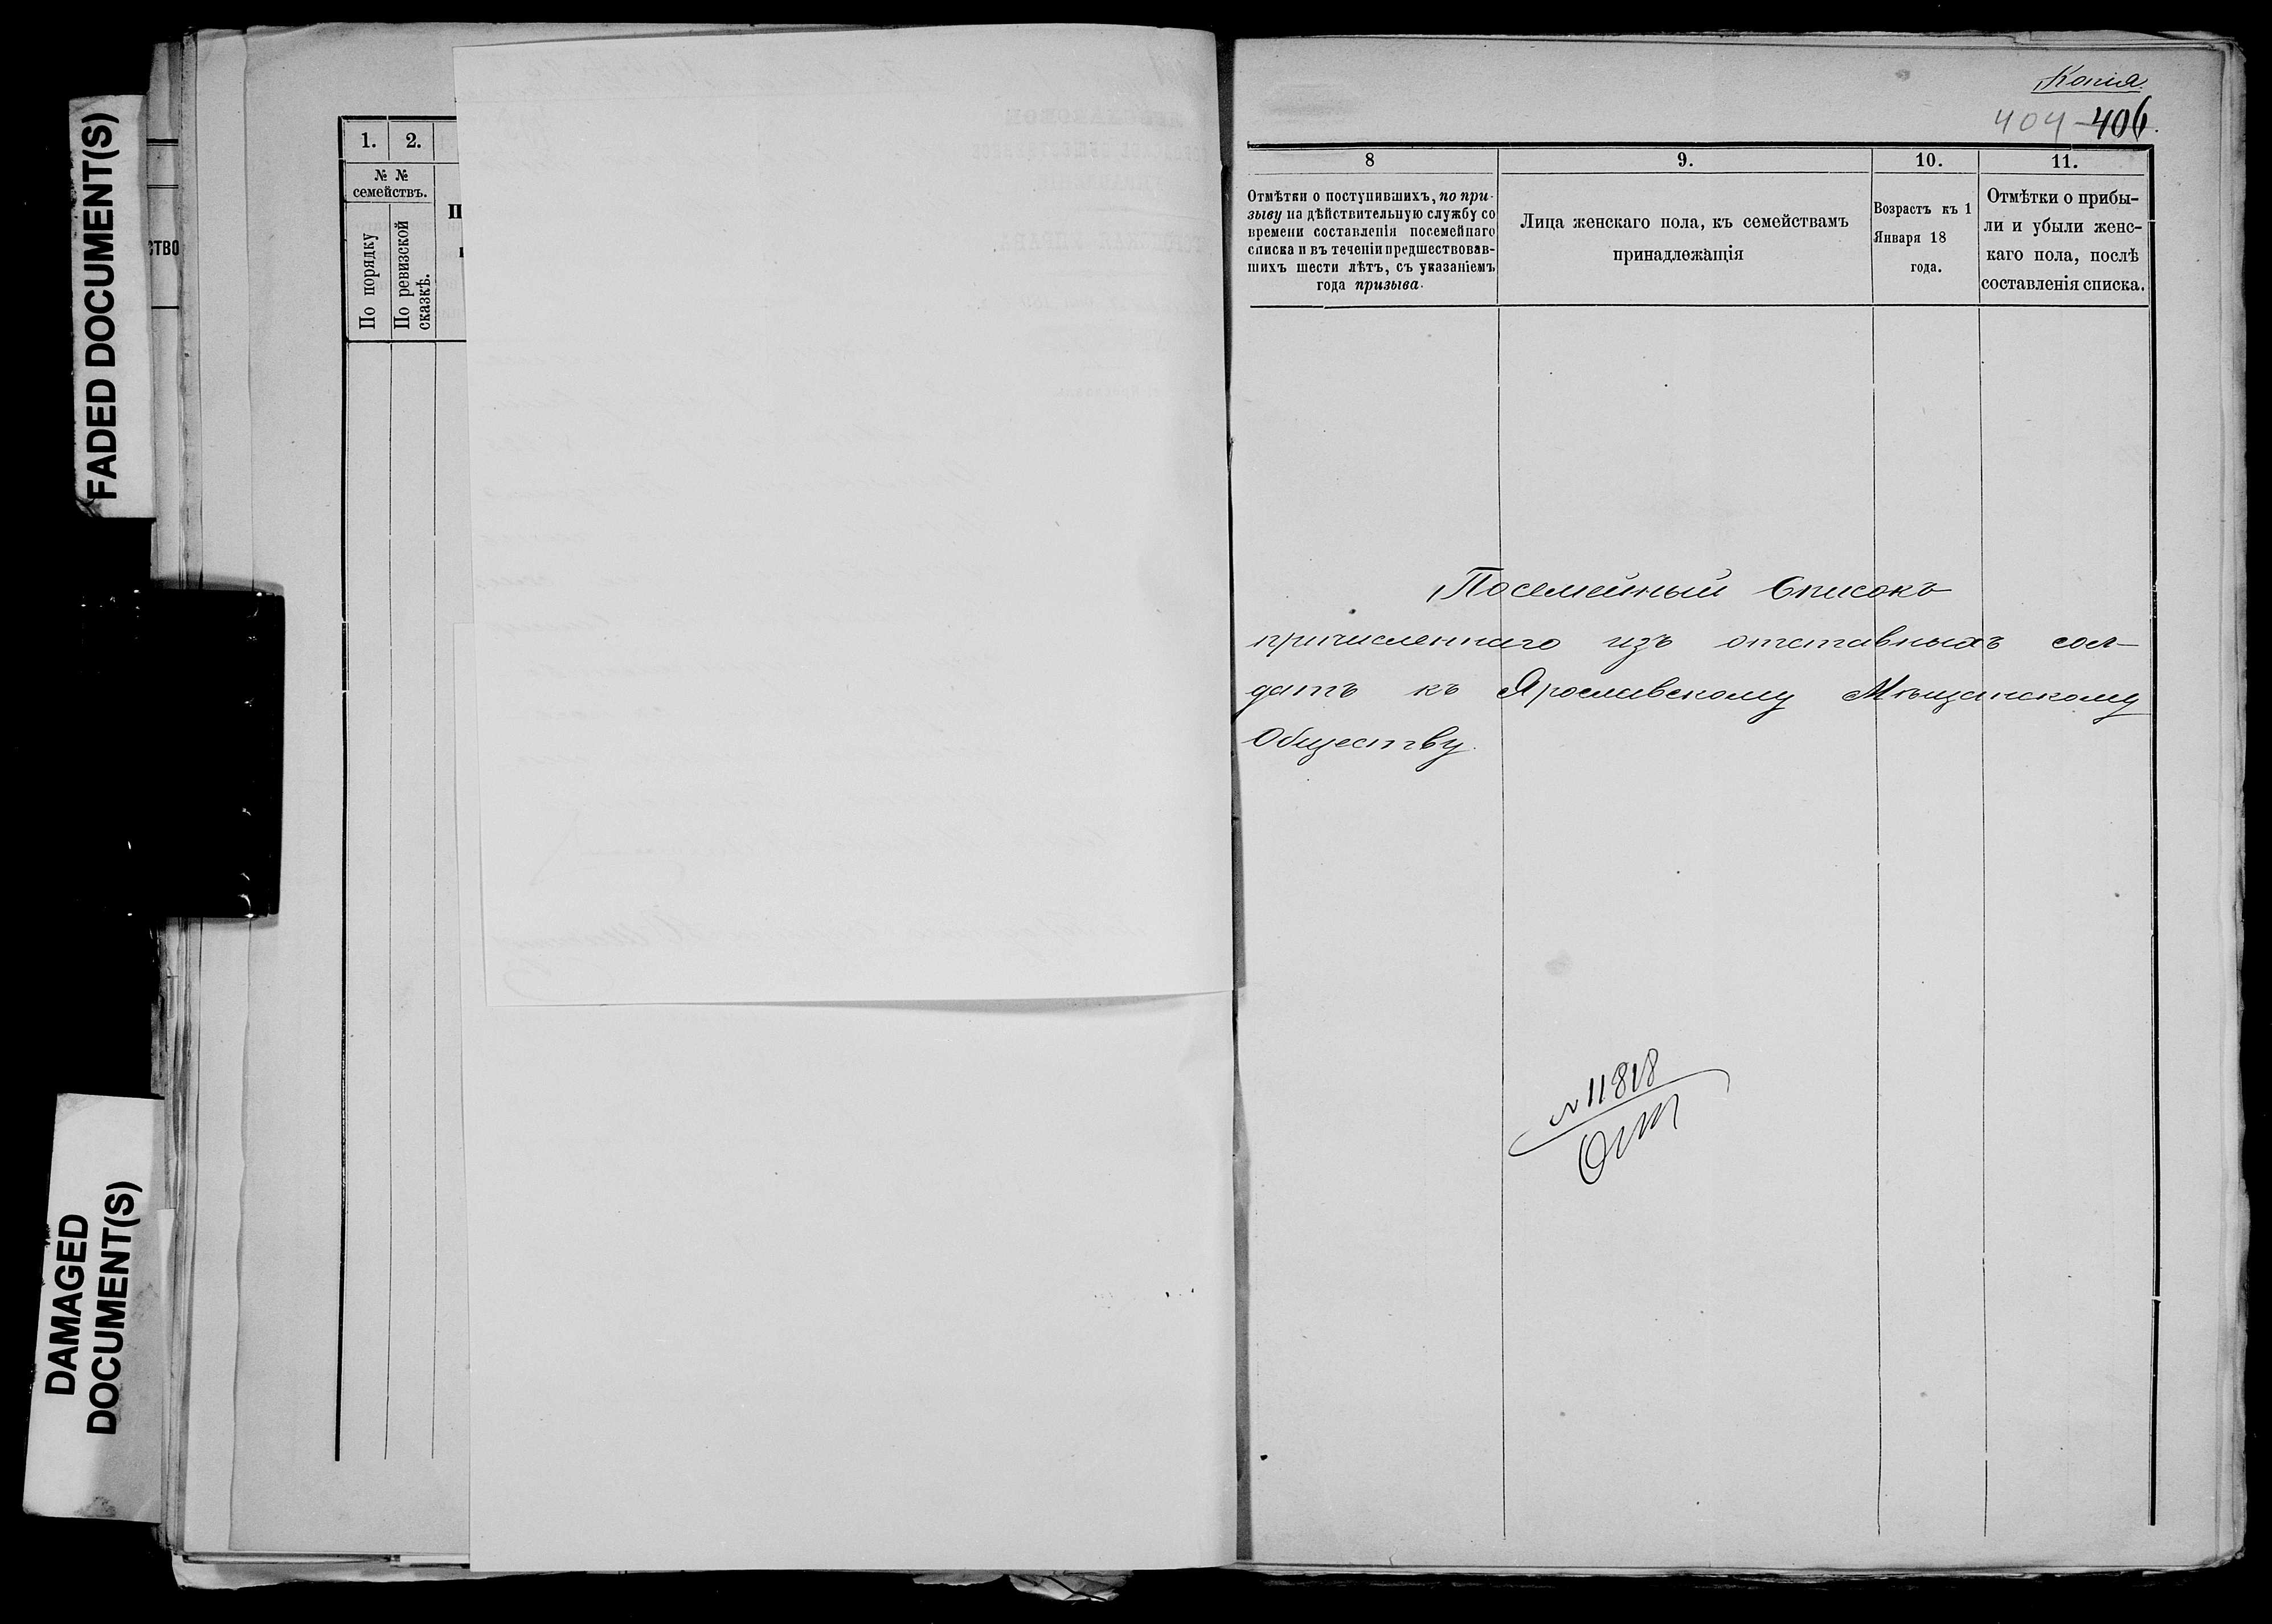 FADED DOCUMENT(S)
DAMAGED
DOCUMENT(S)
СТВО
1. 2.
№ №
семействъ.
По порядку
По ревизской
сказкѣ.
П
Копія.
404 406.
8
Отмѣтки о поступившихъ, по при-
зыву на дѣйствительную службу со
времени составленія посемейнаго
списка и въ теченіи предшествовав-
шихъ шести лѣтъ, съ указаніемъ
года призыва.
9.
Лица женскаго пола, къ семействамъ
принадлежащія
10.
Возрастъ къ 1
Января 18
года.
11.
Отмѣтки о прибы-
ли и убыли женс-
каго пола, послѣ
составленія списка.
Посемейный Списокъ
причисленнаго изъ отставныхъ сол-
датъ къ Ярославскому Мѣщанскому
Обществу.
№ 11818